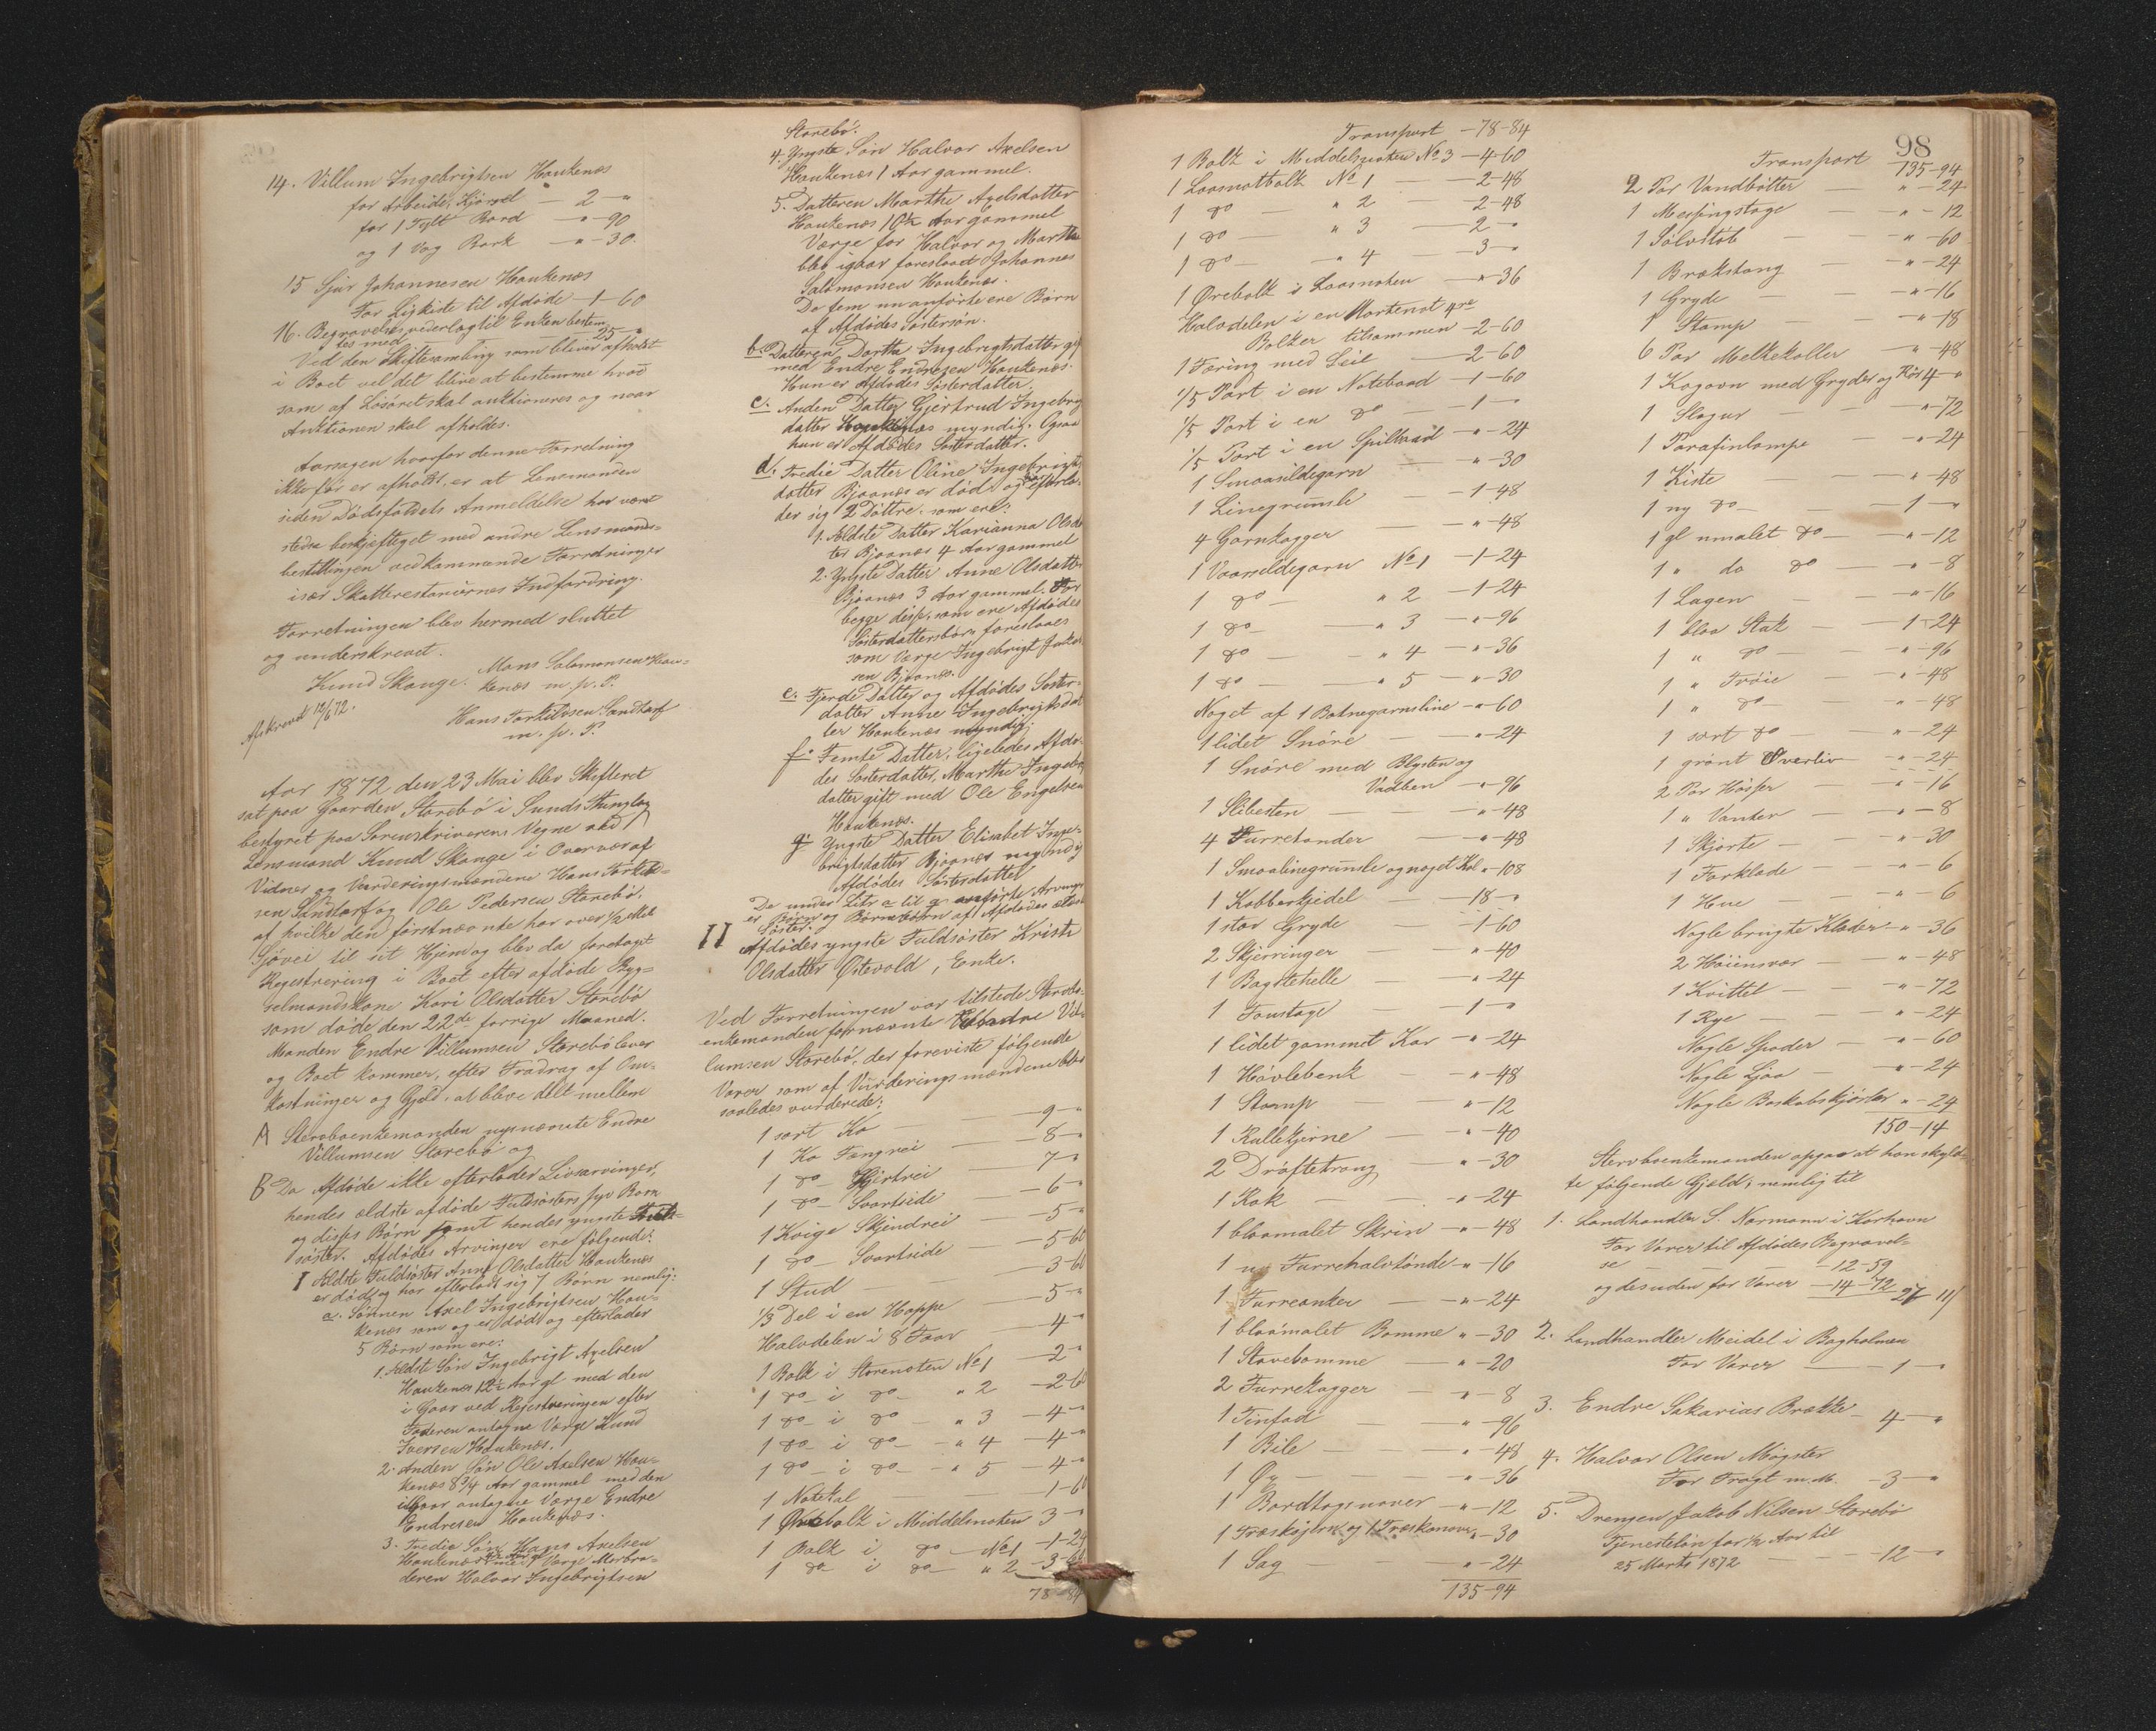 14. Villum Ingebrigtsen Haukenæs
for Arbeide, Kjørsel — 2 — "
for 1 Tylt Bord — " — 90
og 1 Vog Bark — " — 30.
15 Sjur Johannesen Haukenæs
For Ligkiste til Afdøde — 1 — 60
16. Begravelsesvederlag til Enken bestem
tes med — 25 — "
Ved den Skiftesamling som bliver afholdt
i Boet vil det blive at bestemme hvad
som af Løsøret skal auktioneres og naar
Auktionen skal afholdes.
Aarsagen hvorfor denne Forretning
ikke før er afholdt, er at Lensmanden
siden Dødsfaldets Anmeldelse har været
stedse beskjæftiget med andre Lensmands-
bestillingen vedkommende Forretninger
især Skatterestancernes Indfordring.
Forretningen blev hermed sluttet
og underskrevet.
Knud Skauge. Mons Salomonsen Hau-
kenæs m. p. P.
Afskrevet 12/6 72.
Hans Torkildsen Sandtorf
m. p. P.
Aar 1872 den 23 Mai blev Skifteret
sat paa Gaarden Storebø i Sunds Thinglag
bestyret paa Sorenskriverens Vegne ved
Lensmand Knud Skauge i Overvær af
Vidner og Vurderingsmændene Hans Torkild-
sen Sandtorf og Ole Pedersen Storebø,
af hvilke den førstnævnte har over 1/2 Mil
Søvei til sit Hjem og blev da foretaget
Registrering i Boet efter afdøde Byg-
selmandskone Kari Olsdatter Storebø
som døde den 22de forrige Maaned.
Manden Endre Villumsen Storebø lever
og Boet kommer, efter Fradrag af Om-
kostninger og Gjæld, at blive delt mellem
A Stervboenkemanden nysnævnte Endre
Villumsen Storebø og
B Da Afdøde ikke efterlader Livsarvinger,
hendes ældste afdøde Fuldsøsters syv Børn
og disses Børn samt hendes yngste Fuld-
søster. Afdødes Arvinger ere følgende:
I Ældste Fuldsøster Anne Olsdatter Haukenæs
er død og har efterladt sig 7 Børn nemlig:
a. Sønnen Axel Ingebrigtsen Hau-
kenæs som og er død og efterlader
5 Børn som ere:
1. Ældste Søn Ingebrigt Axelsen
Haukenæs 12 1/2 Aar gl med den
i Gaar ved Registreringen efter
Faderen antagne Værge Knud
Iversen Haukenæs.
2. Anden Søn Ole Axelsen Hau-
kenæs 8 3/4 Aar gammel med den
igaar antagne Værge Endre
Endresen Haukenæs.
3. Tredie Søn Hans Axelsen
Haukenæs med Værge Morbro-
deren Halvor Ingebrigtsen
Storebø.
4. Yngste Søn Halvor Axelsen
Haukenæs 1 Aar gammel.
5. Datteren Marthe Axelsdatter
Haukenæs 10 1/2 Aar gammel
Værge for Halvor og Marthe
blev igaar foreslaaet Johannes
Salomonsen Haukenæs.
De fem nuanførte ere Børn
af Afdødes Søstersøn.
b. Datteren Dorthe Ingebrigtsdatter gift
med Endre Endresen Haukenæs.
Hun er Afdødes Søsterdatter.
c. Anden Datter Gjertrud Ingebrigts
datter Haukenæs myndig. Ogsaa
hun er Afdødes Søsterdatter.
d. Tredie Datter Oline Ingebrigts
datter Bjaanæs er død og har efterla-
der sig 2 Døttre som ere:
1. Ældste Datter Karianna Olsdat
ter Bjaanæs 4 Aar gammel
2. Yngste Datter Anne Olsdatter
Bjaanæs 3 Aar gammel. For
begge disse, som ere Afdødes
Søsterdattersbørn foreslaaes
som Værge Ingebrigt Jakob
sen Bjaanæs.
e. Fjerde Datter og Afdødes Søster-
datter Anne Ingebrigtsdat
ter Haukenæs myndig.
f. Femte Datter, ligeledes Afdø-
des Søsterdatter, Marthe Ingebrigts
datter gift med Ole Engelsen
Haukenæs.
g. Yngste Datter Elisabet Inge-
brigtsdatter Bjaanæs myndig
Afdødes Søsterdatter
De under Litr a til g anførte Arvinger
er Børn og Børnebørn af Afdødes ældste
Søster.
II Afdødes yngste Fuldsøster Kristi
Olsdatter Østevold, Enke.
Ved Forretningen var tilstede Stervbo-
enkemanden fornævnte Endre Vil-
lumsen Storebø, der foreviste følgende
Varer som af Vurderingsmændene blev
saaledes vurderede:
1 sort Ko — 9 — "
1 Ko Fangrei — 8 — "
1 do Hjertrei — 7 — "
1 do Svartside — 6 — "
1 Kvige Skjendrei — 5 — "
1 do Svartside — 5 — 60
1 Stud — 3 — 60
1/3 Del i en Hoppe — 5 — "
Halvdelen i 8 Faar — 4 — "
1 Bolk i Storenoten No 1 — 2 — "
1 do i do " 2 — 2 — 60
1 do i do " 3 — 4 — "
1 do i do " 4 — 4 — "
1 do i do " 5 — 4 — "
1 Notekal — 1 — 60
1 Ørebolk i Middelnoten 3 — "
1 Bolk i do No 1 — 1 — 24
1 do i do " 2 — 3 — 60
78 — 84
98
Transport — 78 — 84
1 Bolk i Middelnoten No 3 — 4 — 60
1 Laasnotbolk No 1 — 2 — 48
1 do " 2 — 2 — 48
1 do " 3 — 2 — "
1 do " 4 — 3 — "
1 Ørebolk i Laasnoten — " — 36
Halvdelen i en Mortenot 4re
Bolker tilsammen — 2 — 60
1 Færing med Seil — 2 — 60
1/5 Part i en Notebaad — 1 — 60
1/5 Part i en do — 1 — "
1/5 Part i en Spilbaad — " — 24
1 Smaasildegarn — " — 30
1 Linegrumle — 1 — 48
4 Garnkagger — " — 48
1 Vaarsildegarn No 1 — 1 — 24
1 do " 2 — 1 — 24
1 do " 3 — " — 96
1 do " 4 — " — 36
1 do " 5 — " — 30
Noget af 1 Botnegarnsline — " — 60
1 lidet Snøre — " — 24
1 Snøre med Blysten og
Vadben — " — 96
1 Slibesten — " — 48
4 Furretønder — " — 48
1 Smaalinegrumle og noget Kol " — 108
1 Kobberkjedel — 18 — "
1 stor Gryde — 1 — 60
2 Skjerringer — " — 40
1 Bagstehelle — " — 24
1 Faustage — 1 — "
1 lidet gammet Kar — " — 24
1 Høvlebenk — " — 48
1 Stamp — " — 12
1 Rullekjerne — " — 40
2 Drøftetraug — " — 30
1 Rok — " — 24
1 blaamalet Skrin — " — 48
1 ny Furrehalvtønde — " — 16
1 Furreanker — " — 24
1 blaamalet Bomme " — 30
1 Stavebomme — " — 20
2 Furrekagger — " — 8
1 Tinfad — " — 96
1 Bile — " — 48
1 Øx — " — 36
1 Bordtagsnaver — " — 12
1 Træskojern og 1 Træskonaver " — 30
1 Sag — " — 24
135 — 94
Transport 135 — 94
2 Par Vandbøtter — " — 24
1 Messingstage — " — 12
1 Sølvstob — " — 60
1 Brækstang — " — 24
1 Gryde — " — 16
1 Stamp — " — 18
6 Par Melkekoller — " — 48
1 Kogovn med Gryder og Rør 4 — "
1 Slagur — " — 72
1 Parafinlampe — " — 24
1 Kiste — " — 48
1 ny do — 1 — "
1 gl umalet do — " — 12
1 " do do — " — 8
1 Lagen — " — 16
1 blaa Stak — 1 — 24
1 " do — " — 96
1 " Trøie — " — 48
1 " do — " — 48
1 sort do — " — 24
1 grønt Overliv — " — 24
2 Par Hoser — " — 16
1 " Vanter — " — 8
1 Skjorte — " — 30
1 Forklæde — " — 6
1 Hue — " — 6
Nogle brugte Klæder — " — 36
2 Høiensvær — " — 48
1 Kvittel — " — 72
1 Rye — " — 24
Nogle Spader — " — 60
Nogle Ljaa — " — 24
Nogle Boskabskjørler " — 24
150 — 14
Stervboenkemanden opgav at han skyld-
te følgende Gjæld, nemlig til
1. Landhandler S. Normann i Korshavn
For Varer til Afdødes Begravel-
se — 12 — 59
og desuden for Varer — 14 — 72 27 11
2. Landhandler Meidel i Bagholmen
For Varer — 1 — "
3. Endre Sakarias Brække — 4 — "
4. Halvor Olsen Møgster
For Fragt m. M. — 3 — "
5. Drengen Jakob Nilsen Storebø
Tjenesteløn for 1/2 Aar til
25 Marts 1872 — 12 — "